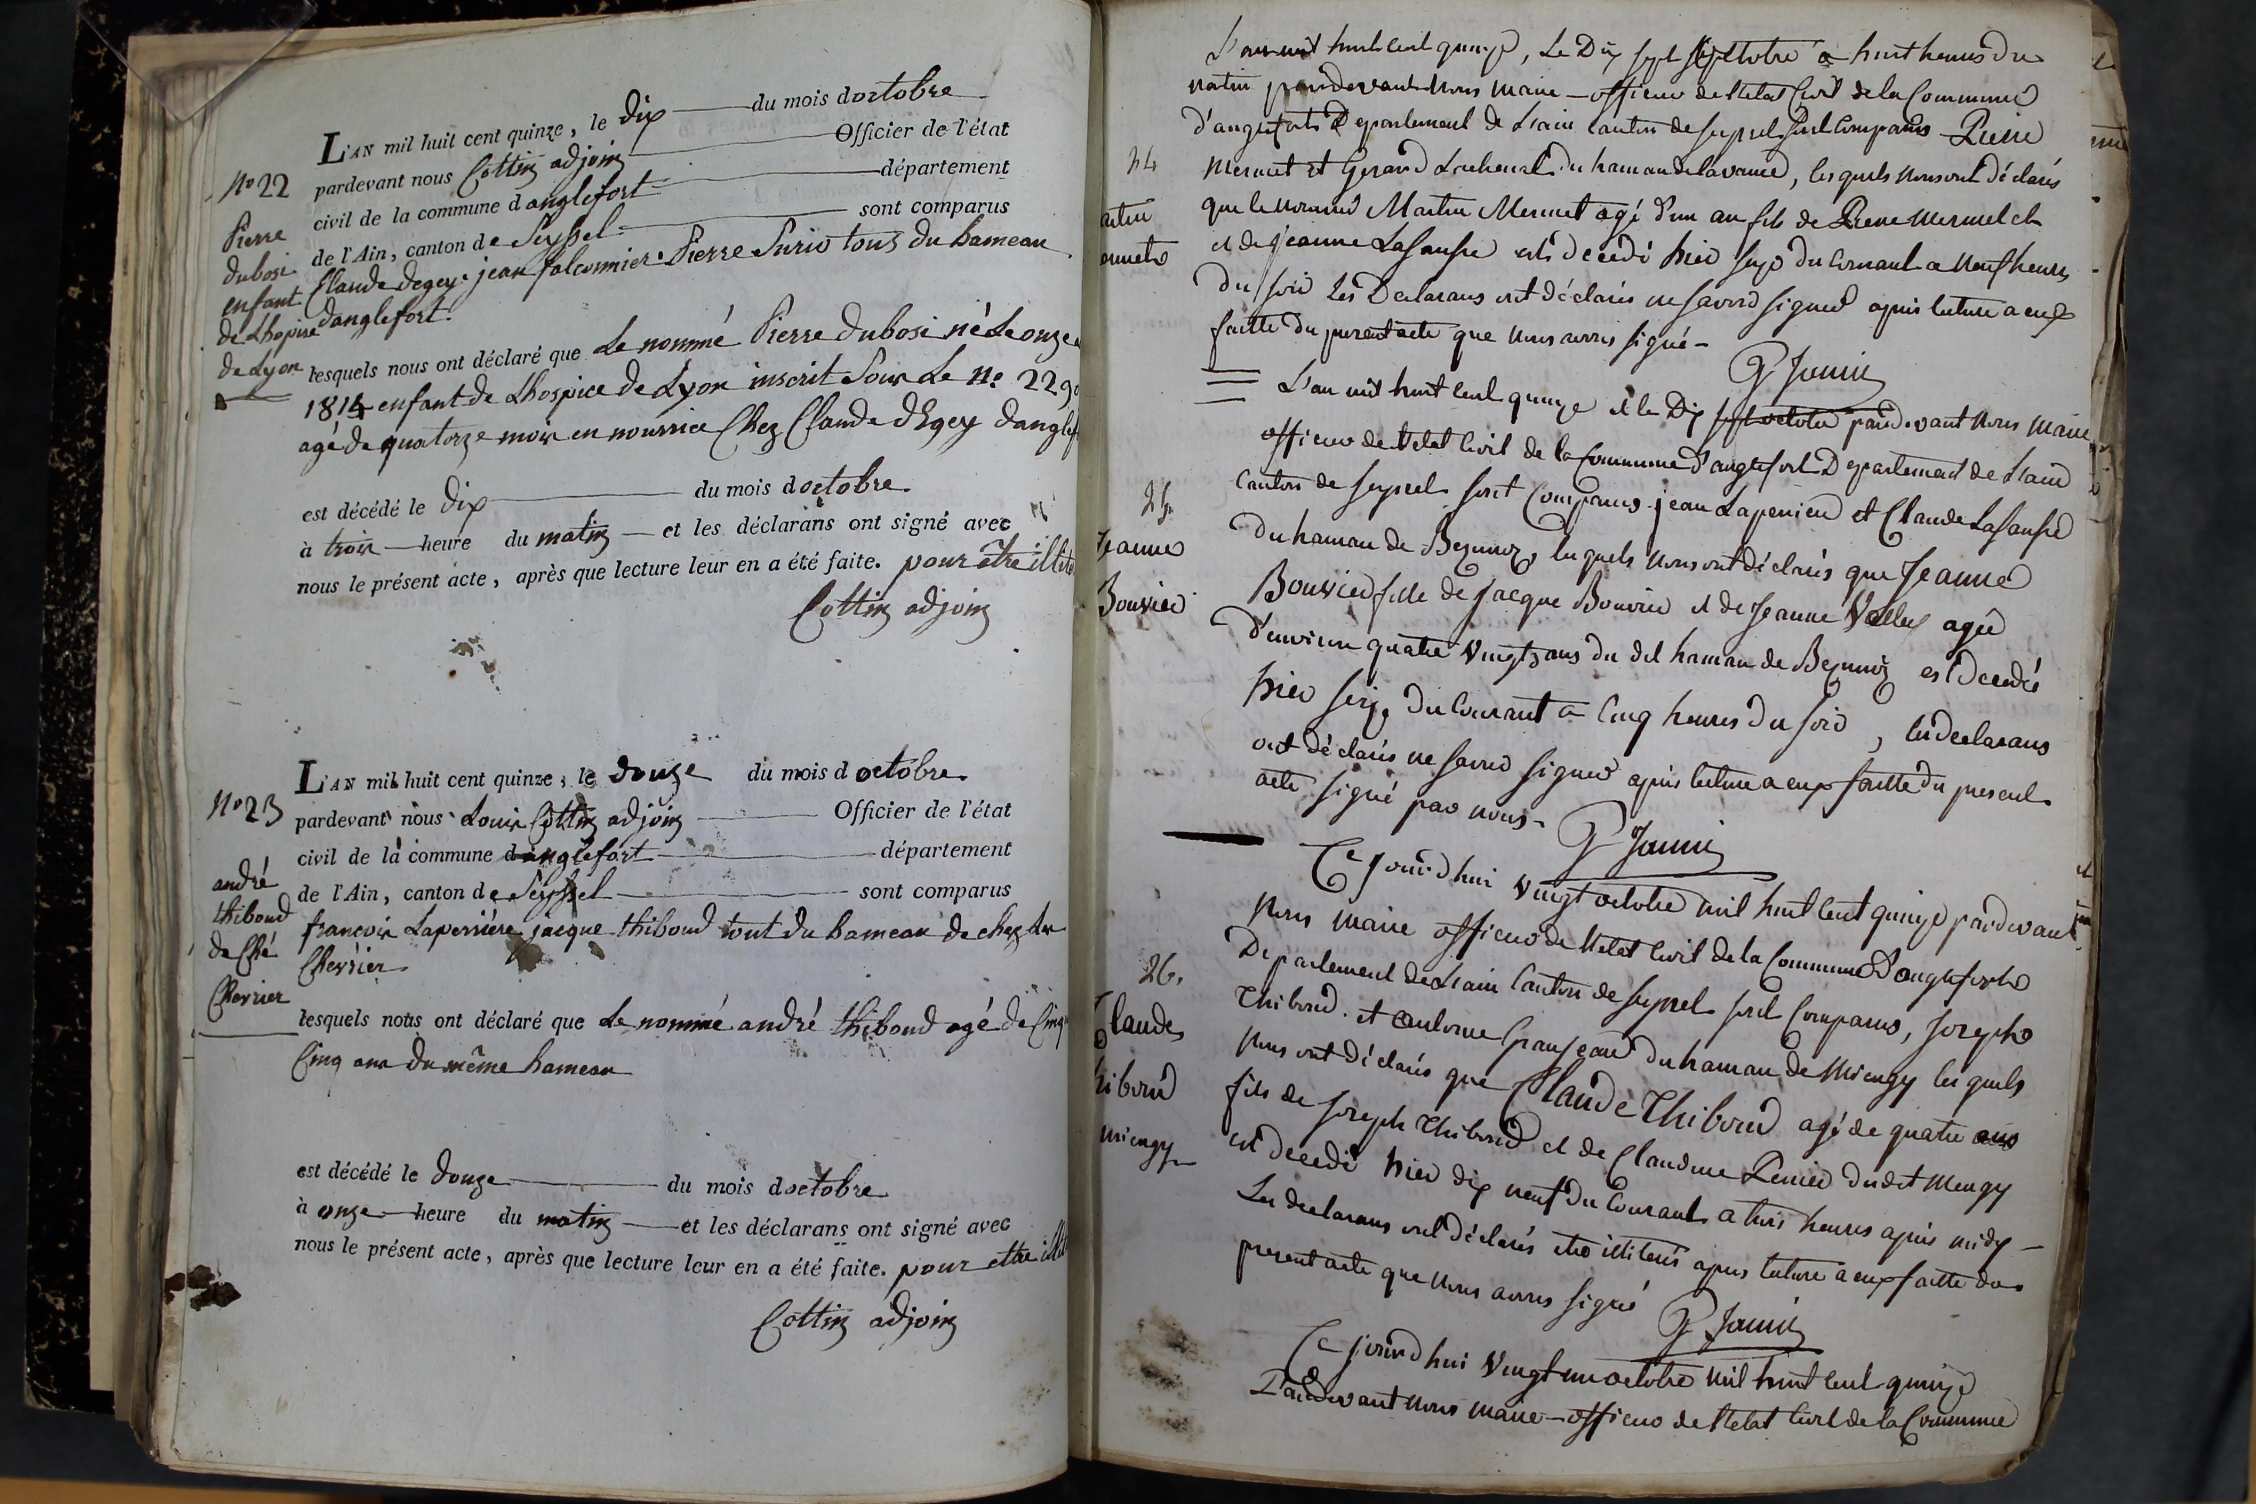 L'AN mil huit cent quinze, le dix du mois d octobre
pardevant nous Cottin adjoin Officier de l'état
civil de la commune d anglefort département
de l'Ain, canton de Seyssel sont comparus
Claude degey. jean falconnier. Pierre Surio tous du hameau
danglefort.
lesquels nous ont déclaré que Le nommé Pierre dubosi né Le onze
1814 enfant de Lhospice de Lyon inscrit Sous Le n.o 229
agé de quatorze mois en nourrice Chez Claude dEgey danglef
est décédé le dix du mois d octobre
à trois heure du matin et les déclarans ont signé avec
nous le présent acte, après que lecture leur en a été faite. pour être illité
Cottin adjoin
No 22
Pierre
dubosi
enfant
de Lhopise
de Lyon
L'AN mil huit cent quinze, le douze du mois d octobre
pardevant nous Louis Cottin adjoin Officier de l'état
civil de la commune d anglefort département
de l'Ain, canton de Seyssel sont comparus
francois Laperrière jacque thiboud tout du hameau de chez Les
Chevrier
lesquels nous ont déclaré que Le nommé andré thiboud agé de Cinq
Cinq ans du même hameau
est décédé le douze du mois d octobre
à onze heure du matin et les déclarans ont signé avec
nous le présent acte, après que lecture leur en a été faite. pour ettre illit
Cottin adjoin
No 23
andré
thiboud
de Ché
Chevrier
L'an mil huit cent quinze, Le Dix sept octobre a huit heures du
matin pardevant Nous Maire officier de l'etat Civil de la Commune
d'anglefort Departement de L'ain canton de seyssel sont comparus Pierre
Mermet et Gerard du hamau de lavanne, lesquels nous ont déclarés
que le nommé Martin Mermet agé d'un an fils de Pierre Mermet et
et de jeanne Lasausse est décédé hier seize du Courant a Neuf heures
du soir Les Declarans ont déclarés ne savoir signer apris lecture a eux
faitte du present acte que nous avons signé
G Jannin
24
artin
ermet
L'an mil huit cent quinze et le Dix sept octobre pardevant Nous Maire
officier de l'etat Civil de la Commune d'anglefort Departement de L'ain
Canton de seyssel sont Comparus jean Laperriere et Claude Lasausse
du hamau de Bezonnoz, lesquels nous ont déclarés que Jeanne
Bouvier fille de jacque Bouvier et de Jeanne Vallet agée
d'environ quatre Vingts ans du dit hamau de est Decedée
hier seize du Courant a Cinq heures du soir, les declarans
ont déclarés ne savoir signer apris lecture a eux faitte du present
acte signé par nous
G Jannin
25
Jeanne
Bouvier
Ce jourd'hui vingt octobre mil huit Cent quinze pardevant
Nous Maire officier de l'etat Civil de la Commune d'anglefort
Departement de L'ain Canton de seyssel sont Comparus, Joseph
Thiboud. et antoine Granjean du hamau de Miengy lesquels
Nous ont déclarés que Claude Thiboud agé de quatre ans
fils de joseph Thiboud et de Claudine Perrier dudit Mengy
est Decedé hier dix neuf du Courant a trois heures apris midy
Les declarans ont déclarés etre illiterés apris lecture a eux faitte du
present acte que Nous avons signé
G Jannin
26.
Claude
hiboud
miengy
Ce jourd'hui Vingt un octobre mil huit Cent quinze
Pardevant Nous Maire officier de l'etat Civil de la Commune